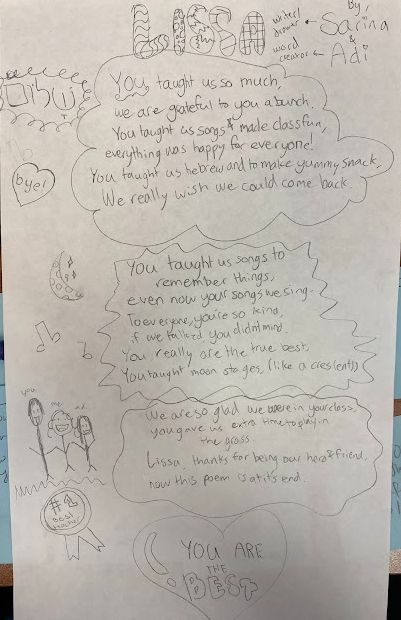 LISSA
By,
writer/ drawer ← Sarina
&
word creator ← Adi
שלום
You taught us so much,
we are grateful to you a bunch.
You taught us songs & made class fun,
everything was happy for everyone!
You taught us hebrew and to make yummy snack,
We really wish we could come back.
bye!
You taught us songs to
remember things,
even now your songs we sing.
To everyone, you're so kind,
if we talked you didn't mind.
You really are the true best,
You taught moon stages, (like a crescent))
you
me
We are so glad we were in your class,
you gave us extra time to play in
the grass.
Lissa, thanks for being our hero & friend,
now this poem is at its end.
#1
Best
teacher
YOU ARE
THE
BEST